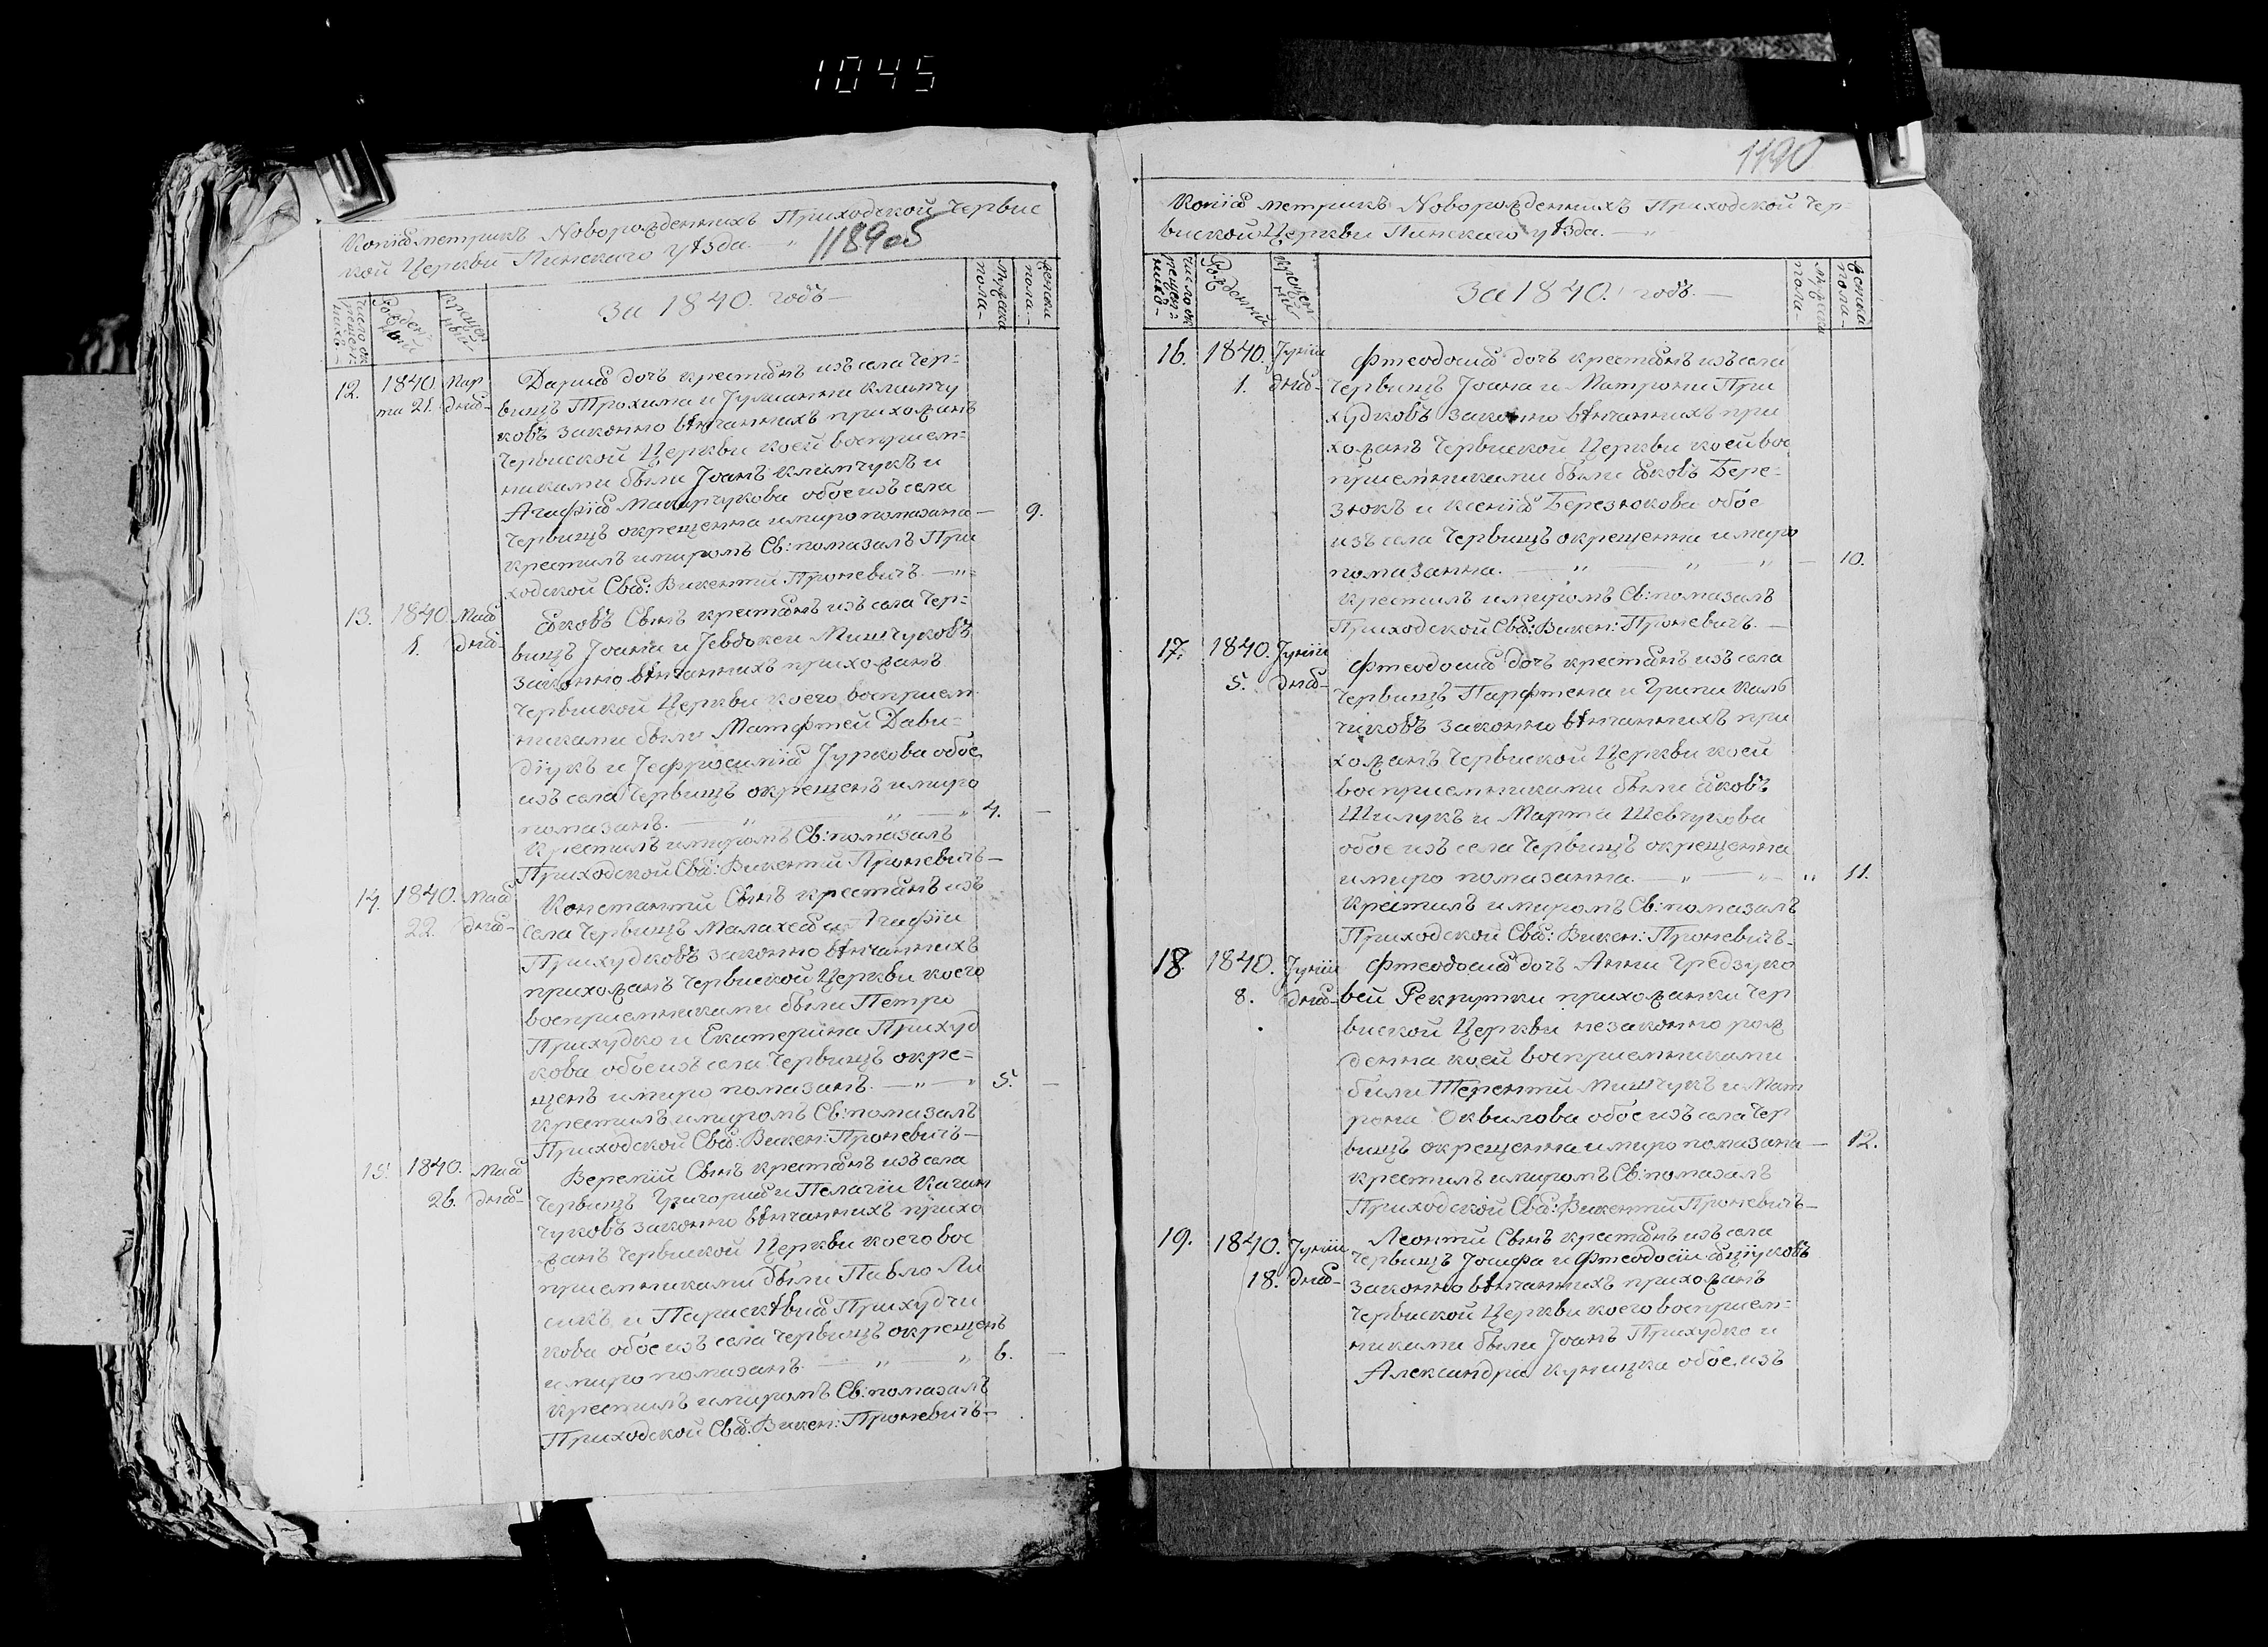 1045
Копіꙗ метрикъ Новорожденнихъ Приходской Червис
кой Церкви Пинскаго уѣзда. 1189 об
число ок
рещен:
нихъ —
Рожден
ній
Крещен
ній
За 1840. годъ —
Мужеска
пола —
Женска
пола —
12. 1840 Мар
та 21. днꙗ —
Дариꙗ дочь крестꙗнъ изъ села Чер=
вищъ Трохима и Јулианни Климчу
ковъ законно вѣнчаннихъ прихожанъ
Червиской Церкви коей восприем=
никами были Јоанъ Климчукъ и
Агафіꙗ Макарчукова обое изъ села
Червищъ окрещенна и миро помазана — 9.
крестилъ и миромъ Св: помазалъ При
ходской Свꙗ: Викентій Проневичъ. —
13. 1840. Маꙗ
1. днꙗ —
Ꙗковъ Сынъ крестꙗнъ изъ села Чер=
вищъ Јоана и Јевдокеи Мишчуковъ
законно вѣнчаннихъ прихожанъ
Червиской Церкви коего восприем
никами были Матфтей Дави=
діукъ и Јефросиміꙗ Јуркова обое
изъ села Червищъ окрещенъ и миро
помазанъ. — " — " — " 4. —
Крестилъ и миромъ Св: помазалъ
Приходской Свꙗ: Викентій Проневичъ —
14. 1840. Маꙗ
22. днꙗ —
Константій Сынъ крестꙗнъ изъ
села Червищъ Малахеꙗ и Агафіи
Прихудковъ законно вѣнчаннихъ
прихожанъ Червиской Церкви коего
восприемниками были Петро
Прихудко и Екатерина Прихуд
кова обое изъ села Червищъ окре=
щенъ и миро помазанъ. — " — " 5. —
крестилъ и миромъ Св: помазалъ
Приходской Свꙗ: Викен: Проневичъ —
15. 1840. Маꙗ
26. днꙗ —
Веремій Сынъ крестꙗнъ изъ села
Червищъ Григориꙗ и Пелагіи Качан
чуковъ законно вѣнчаннихъ прихо
жанъ Червиской Церкви коего вос
приемниками были Павло Ли
сикъ и Парискѣвиꙗ Прихудчи
кова обое изъ села Червищъ окрещенъ
и миро помазанъ. — " — " 6. —
крестилъ и миромъ Св: помазалъ
Приходской Свꙗ: Викен: Проневичъ —
1190
Копіꙗ метрикъ Новорожденнихъ Приходской Чер=
виской Церкви Пинскаго уѣзда. — "
число ок
рещен:
нихъ —
Рожденній
Крещен
ній
За 1840. годъ. —
Мужеска
пола —
Женска
пола —
16. 1840. Јуніи
1. днꙗ —
Фтеодосиꙗ дочь крестꙗнъ изъ села
Червищъ Јоана и Матрони При
худковъ законно вѣнчаннихъ при
хожанъ Червиской Церкви коей вос
приемниками были Ꙗковъ Бере=
зюкъ и Ксеніꙗ Березюкова обое
изъ села Червищъ окрещенна и миро
помазанна. — " — " — " — 10.
крестилъ и миромъ Св: помазалъ
Приходской Свꙗ: Викен: Проневичъ. —
17. 1840. Јуніи
5. днꙗ —
Фтеодосиꙗ дочь крестꙗнъ изъ села
Червищъ Парфтена и Грипи Каль
чиковъ законно вѣнчаннихъ при
хожанъ Червиской Церкви коей
восприемниками были Ꙗковъ
Шилукъ и Марта Шевчукова
обое изъ села Червищъ окрещенна
и миро помазанна. — " — " — " 11.
Крестилъ и миромъ Св: помазалъ
Приходской Свꙗ: Викен: Проневичъ —
18. 1840. Јуніи
8. днꙗ —
Фтеодосиꙗ дочь Анни Гредзуко
вей Рекрутки прихожанки Чер
виской Церкви незаконно рож
денна коей восприемниками
били Терентій Мишчукъ и Мат
рона Оквилова обое изъ села Чер
вищъ окрещенна и миро помазана — 12.
крестилъ и миромъ Св: помазалъ
Приходской Свꙗ: Викентій Проневичъ —
19. 1840. Јуніи
18. днꙗ —
Леонтій Сынъ крестꙗнъ изъ села
Червищъ Јосифа и Фтеодосіи Ꙗціуковъ
законно вѣнчаннихъ прихожанъ
Червиской Церкви коего восприем=
никами были Јоанъ Прихудко и
Александра Куницка обое изъ